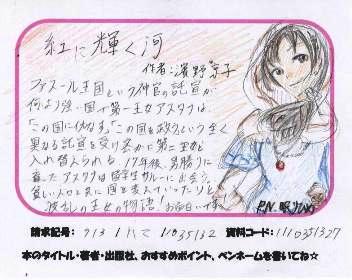 紅に輝く河
作者:濱野京子
ファスール王国という神官の託宣が
何より強い国で第一王女アスタナは
「この国に仇なす」「この国を救う」という全く
異なる託宣を受け密かに第二王女と
入れ替えられる。17年後、男勝りに
育ったアスタナは留学生サルーに出会う。
貧しい人々と共に国を変えていったりと
波乱の王女の物語! お面白いです
P.N. 眠りねこ
請求記号: 913 ハマ 11035132 資料コード: 1110351327
本のタイトル・著者・出版社、おすすめポイント、ペンネームを書いてね☆